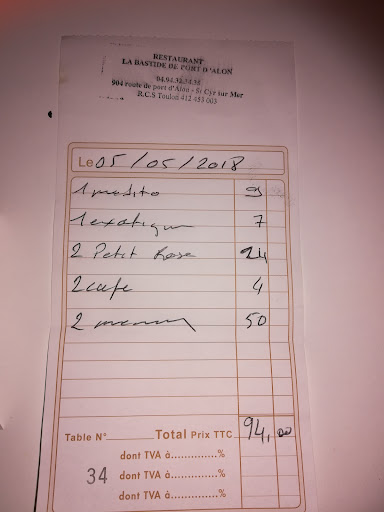 RESTAURANT
LA BASTIDE DE PORT D'ALON
04.94.32.34.38
904 route de port d'Alon - St Cyr sur Mer
R.C.S Toulon 412 493 003
Le 05/05/2018
1 modito 9
1 exotique 7
2 Petit Rose 24
2 cafe 4
2 menu 50
Table N° Total Prix TTC 94,00
dont TVA à..............%
34 dont TVA à..............%
dont TVA à..............%